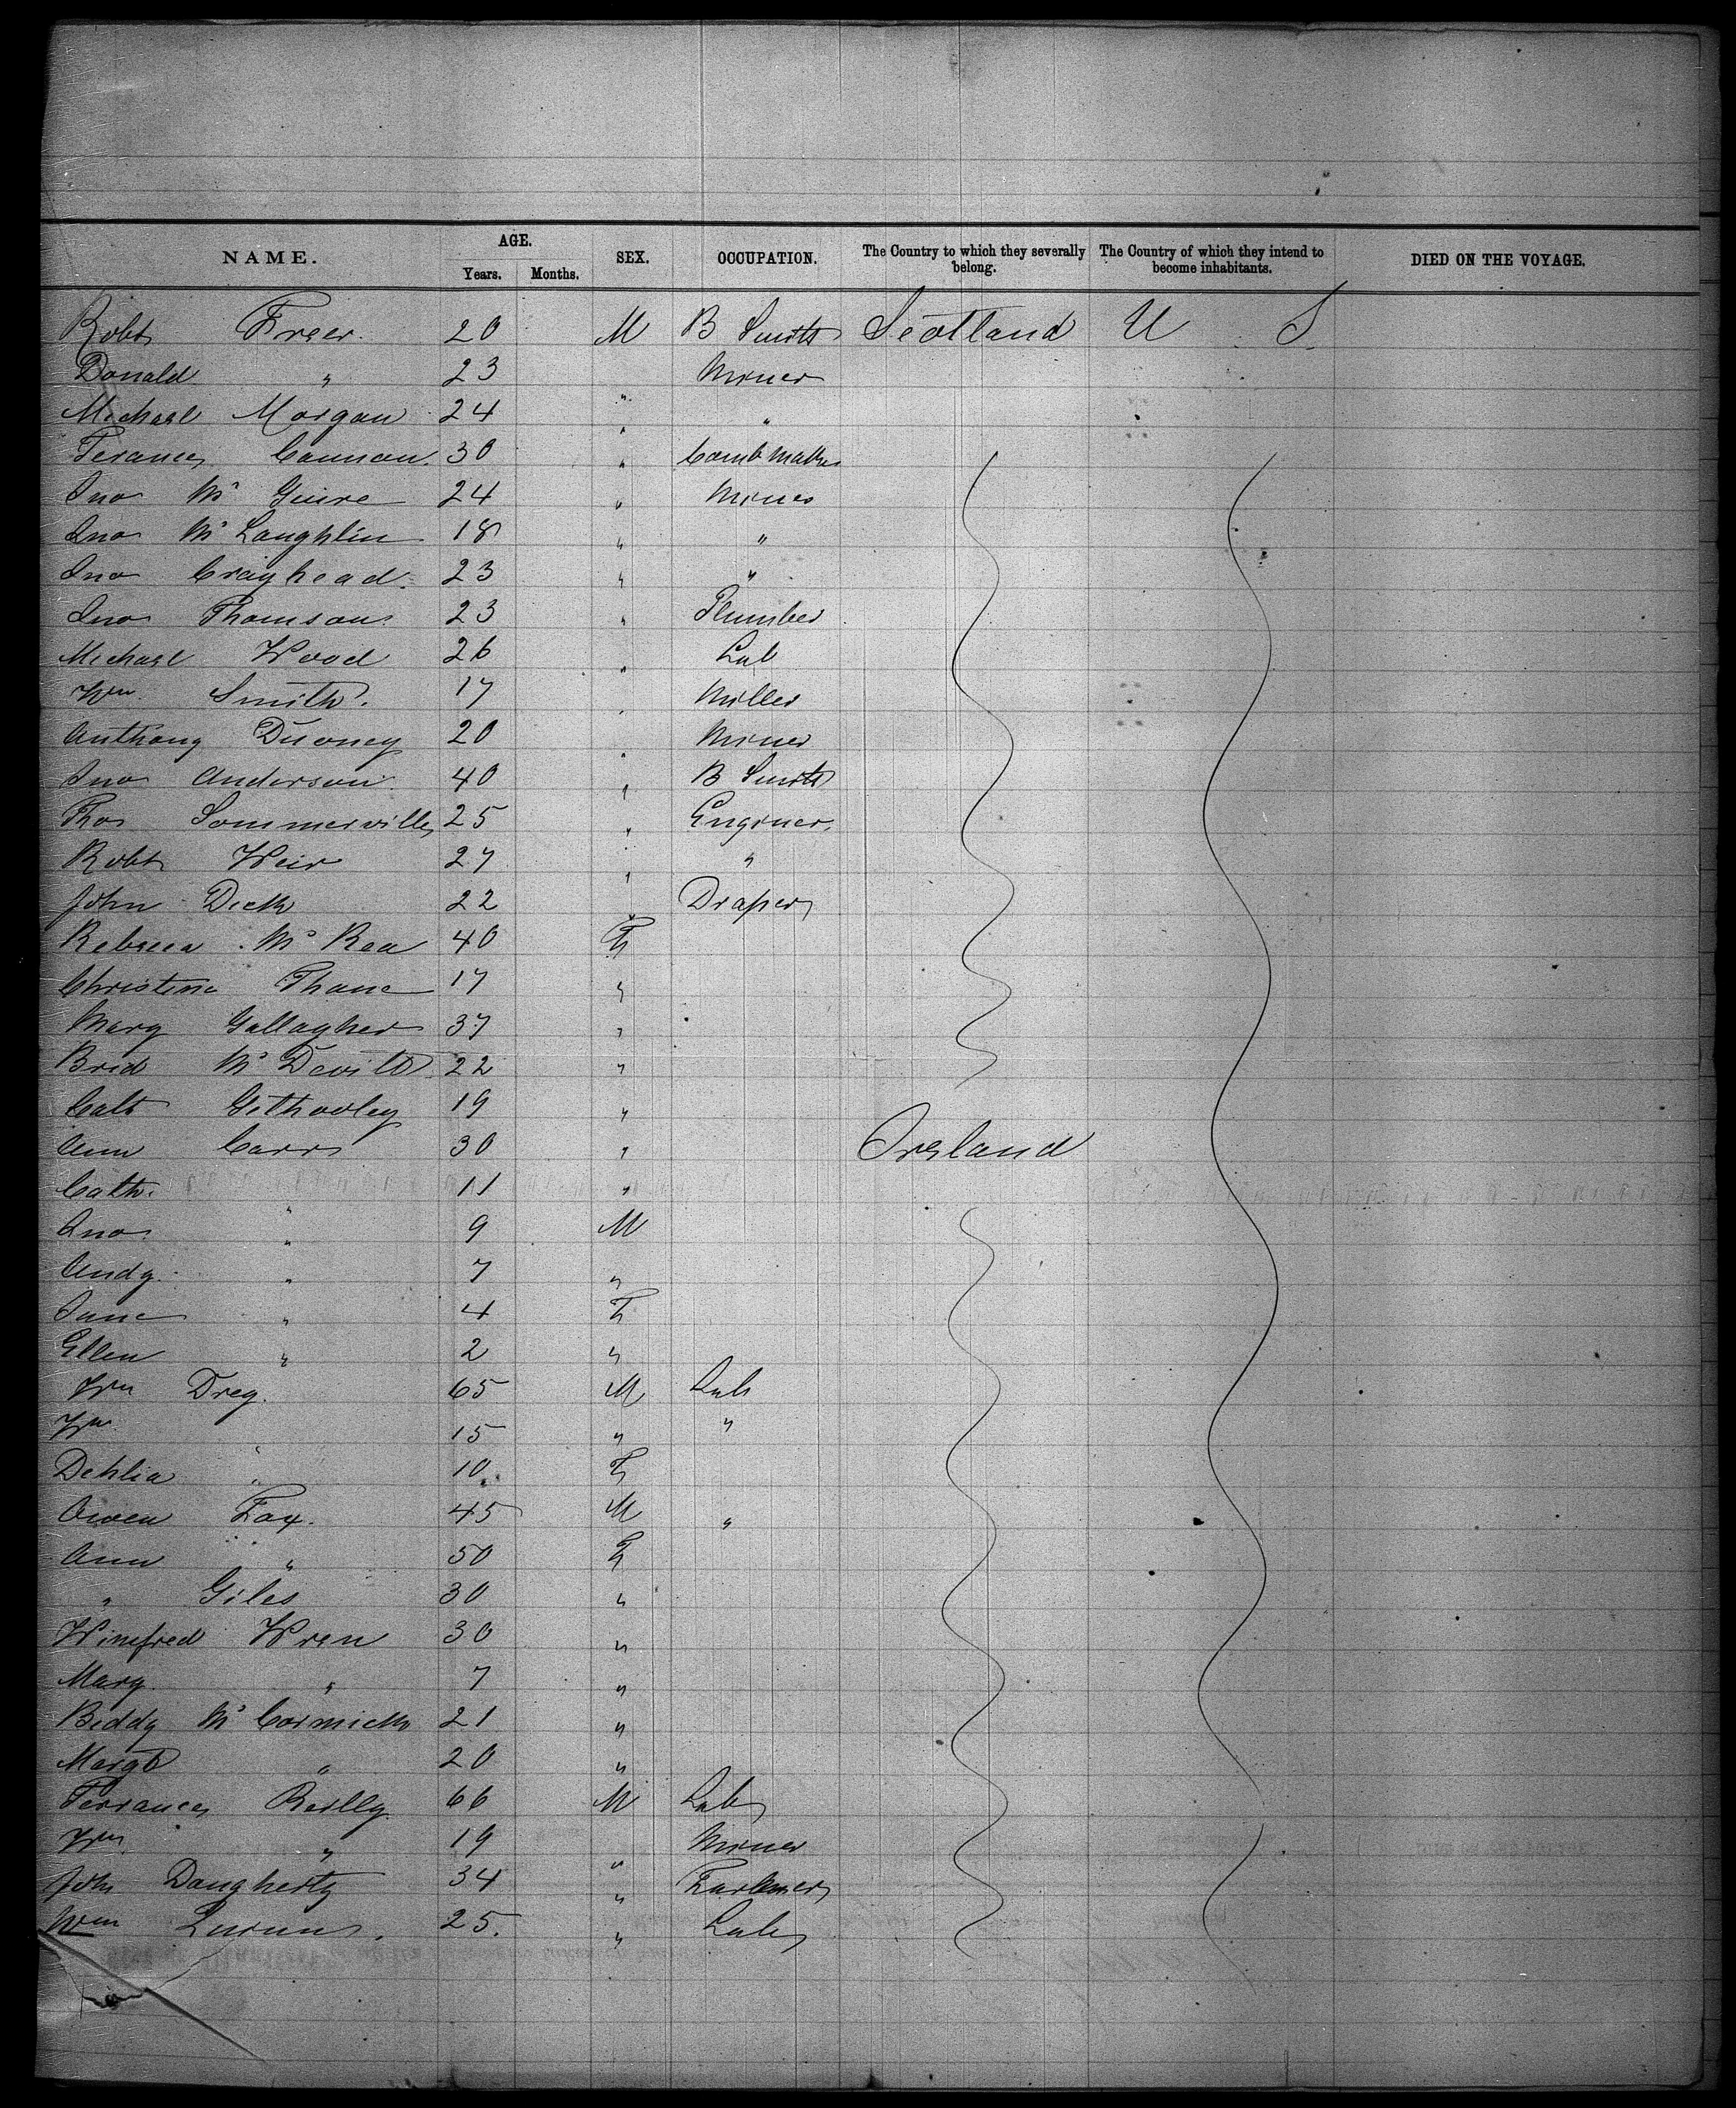 NAME. AGE. SEX. OCCUPATION. The Country to which they severally belong. The Country of which they intend to become inhabitants. DIED ON THE VOYAGE.
Years. Months.
Robt Freer. 20 M B Smith Scotland U S
Donald " 23 Miner
Michael Morgan 24 " "
Terance Cannon 30 " Comb Maker
Jno Mc Guire 24 " Miner
Jno Mc Laughlin 18 " "
Jno Craighead 23 " "
Jno Thomson 23 " Plumber
Michael Wood 26 " Lab
Wm Smith. 17 " Miller
Anthony 20 " Miner
Jno Anderson 40 " B Smith
Thos Sommerville 25 " Enginer
Robt Weir 27 " "
John Dick 22 " Draper
Rebecca Mc Rea 40 F
Christina Thane 17 "
Mary Gallagher 37 "
Brid Mc Devitt 22 "
19 "
Ann Carr 30 " Ireland
Cath. " 11 "
Jno " 9 M
Andy. " 7 "
Jane " 4 F
Ellen " 2 "
Wm Dreg. 65 M Lab
Wm " 15 " "
Dehlia " 10 F
Owen Fox. 45 M "
Ann " 50 F
" Giles 30 "
Winefred Wren 30 "
Mary " 7 "
Biddy Mc Cormick 21 "
Margt " 20 "
Terrance Reilly 66 M Lab
Wm " 19 " Miner
John Daugherty 34 "
Wm 25. " Lab